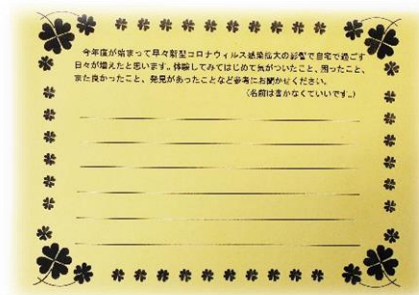 今年度が始まって早々新型コロナウィルス感染拡大の影響で自宅で過ごす
日々が増えたと思います。体験してみてはじめて気がついたこと、困ったこと、
また良かったこと、発見があったことなど参考にお聞かせください。
（名前は書かなくていいです。）